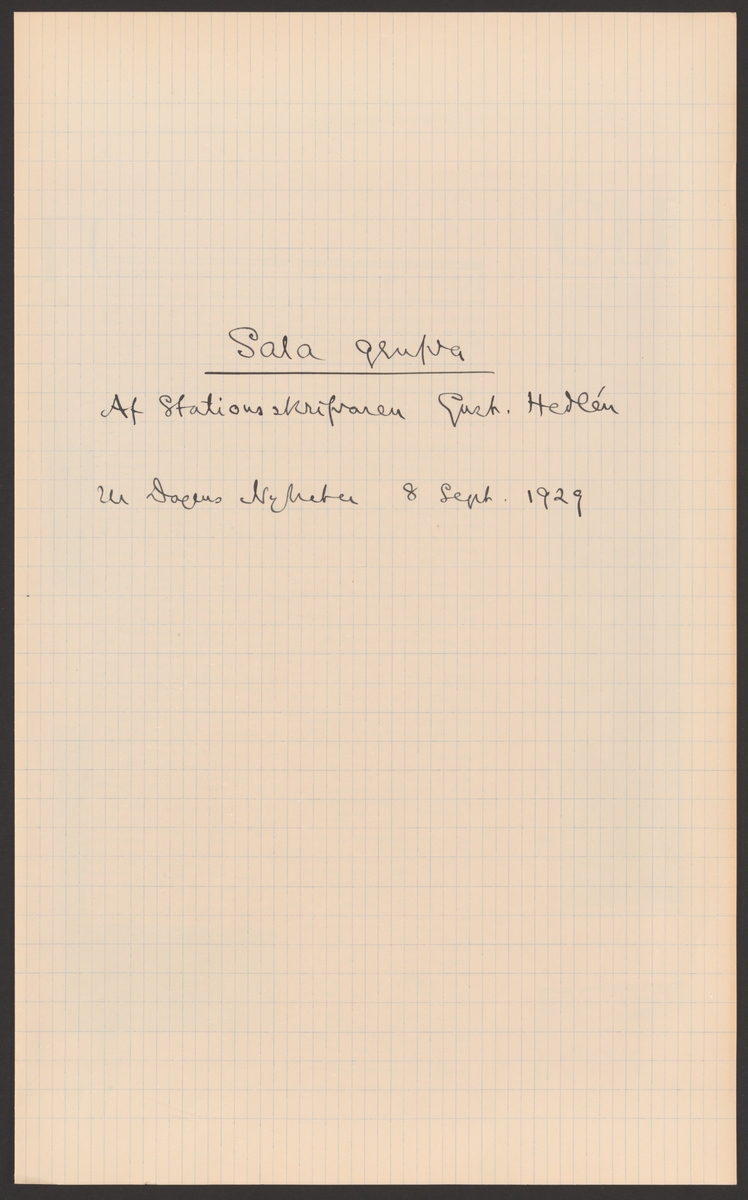 Sala grufva
Af Stationsskrifvaren Gust. Hedlén
Ur Dagens Nyheter 8 Sept. 1929